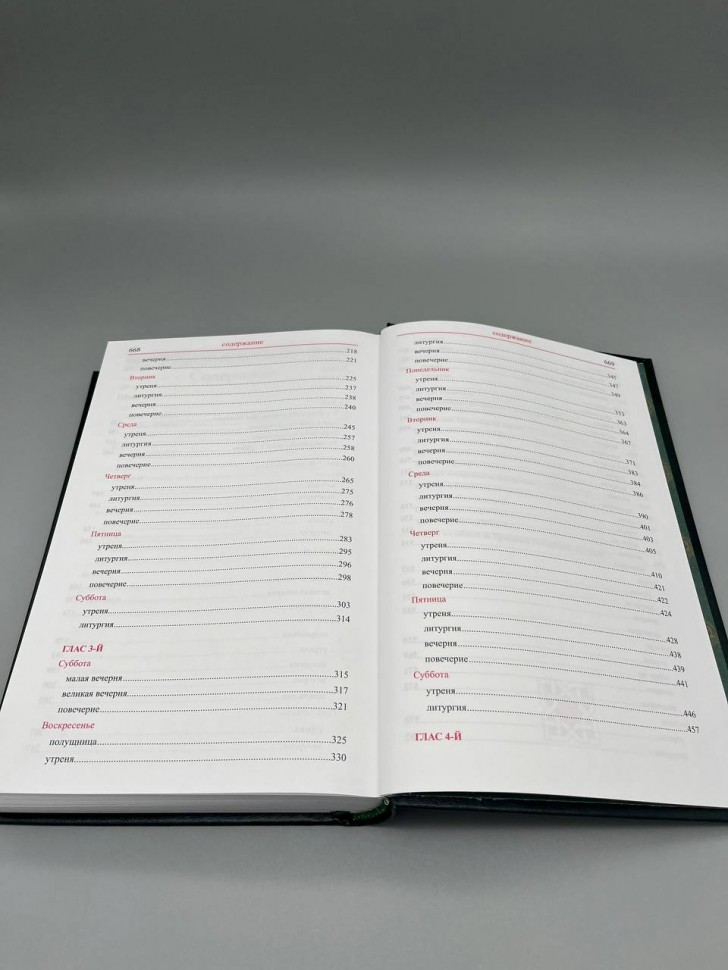 668 содержание
вечерня...218
повечерие...221
Вторник
утреня...225
литургия...237
вечерня...238
повечерие...240
Среда
утреня...245
литургия...257
вечерня...258
повечерие...260
Четверг
утреня...265
литургия...275
вечерня...276
повечерие...278
Пятница
утреня...283
литургия...295
вечерня...296
повечерие...298
Суббота
утреня...303
литургия...314
ГЛАС 3-Й
Суббота
малая вечерня...315
великая вечерня...317
повечерие...321
Воскресенье
полущница...325
утреня...330
содержание 669
литургия...345
вечерня...347
повечерие...349
Понедельник
утреня...353
литургия...363
вечерня...364
повечерие...367
Вторник
утреня...371
литургия...383
вечерня...384
повечерие...386
Среда
утреня...390
литургия...401
вечерня...403
повечерие...405
Четверг
утреня...410
литургия...421
вечерня...422
повечерие...424
Пятница
утреня...428
литургия...438
вечерня...439
повечерие...441
Суббота
утреня...446
литургия...457
ГЛАС 4-Й